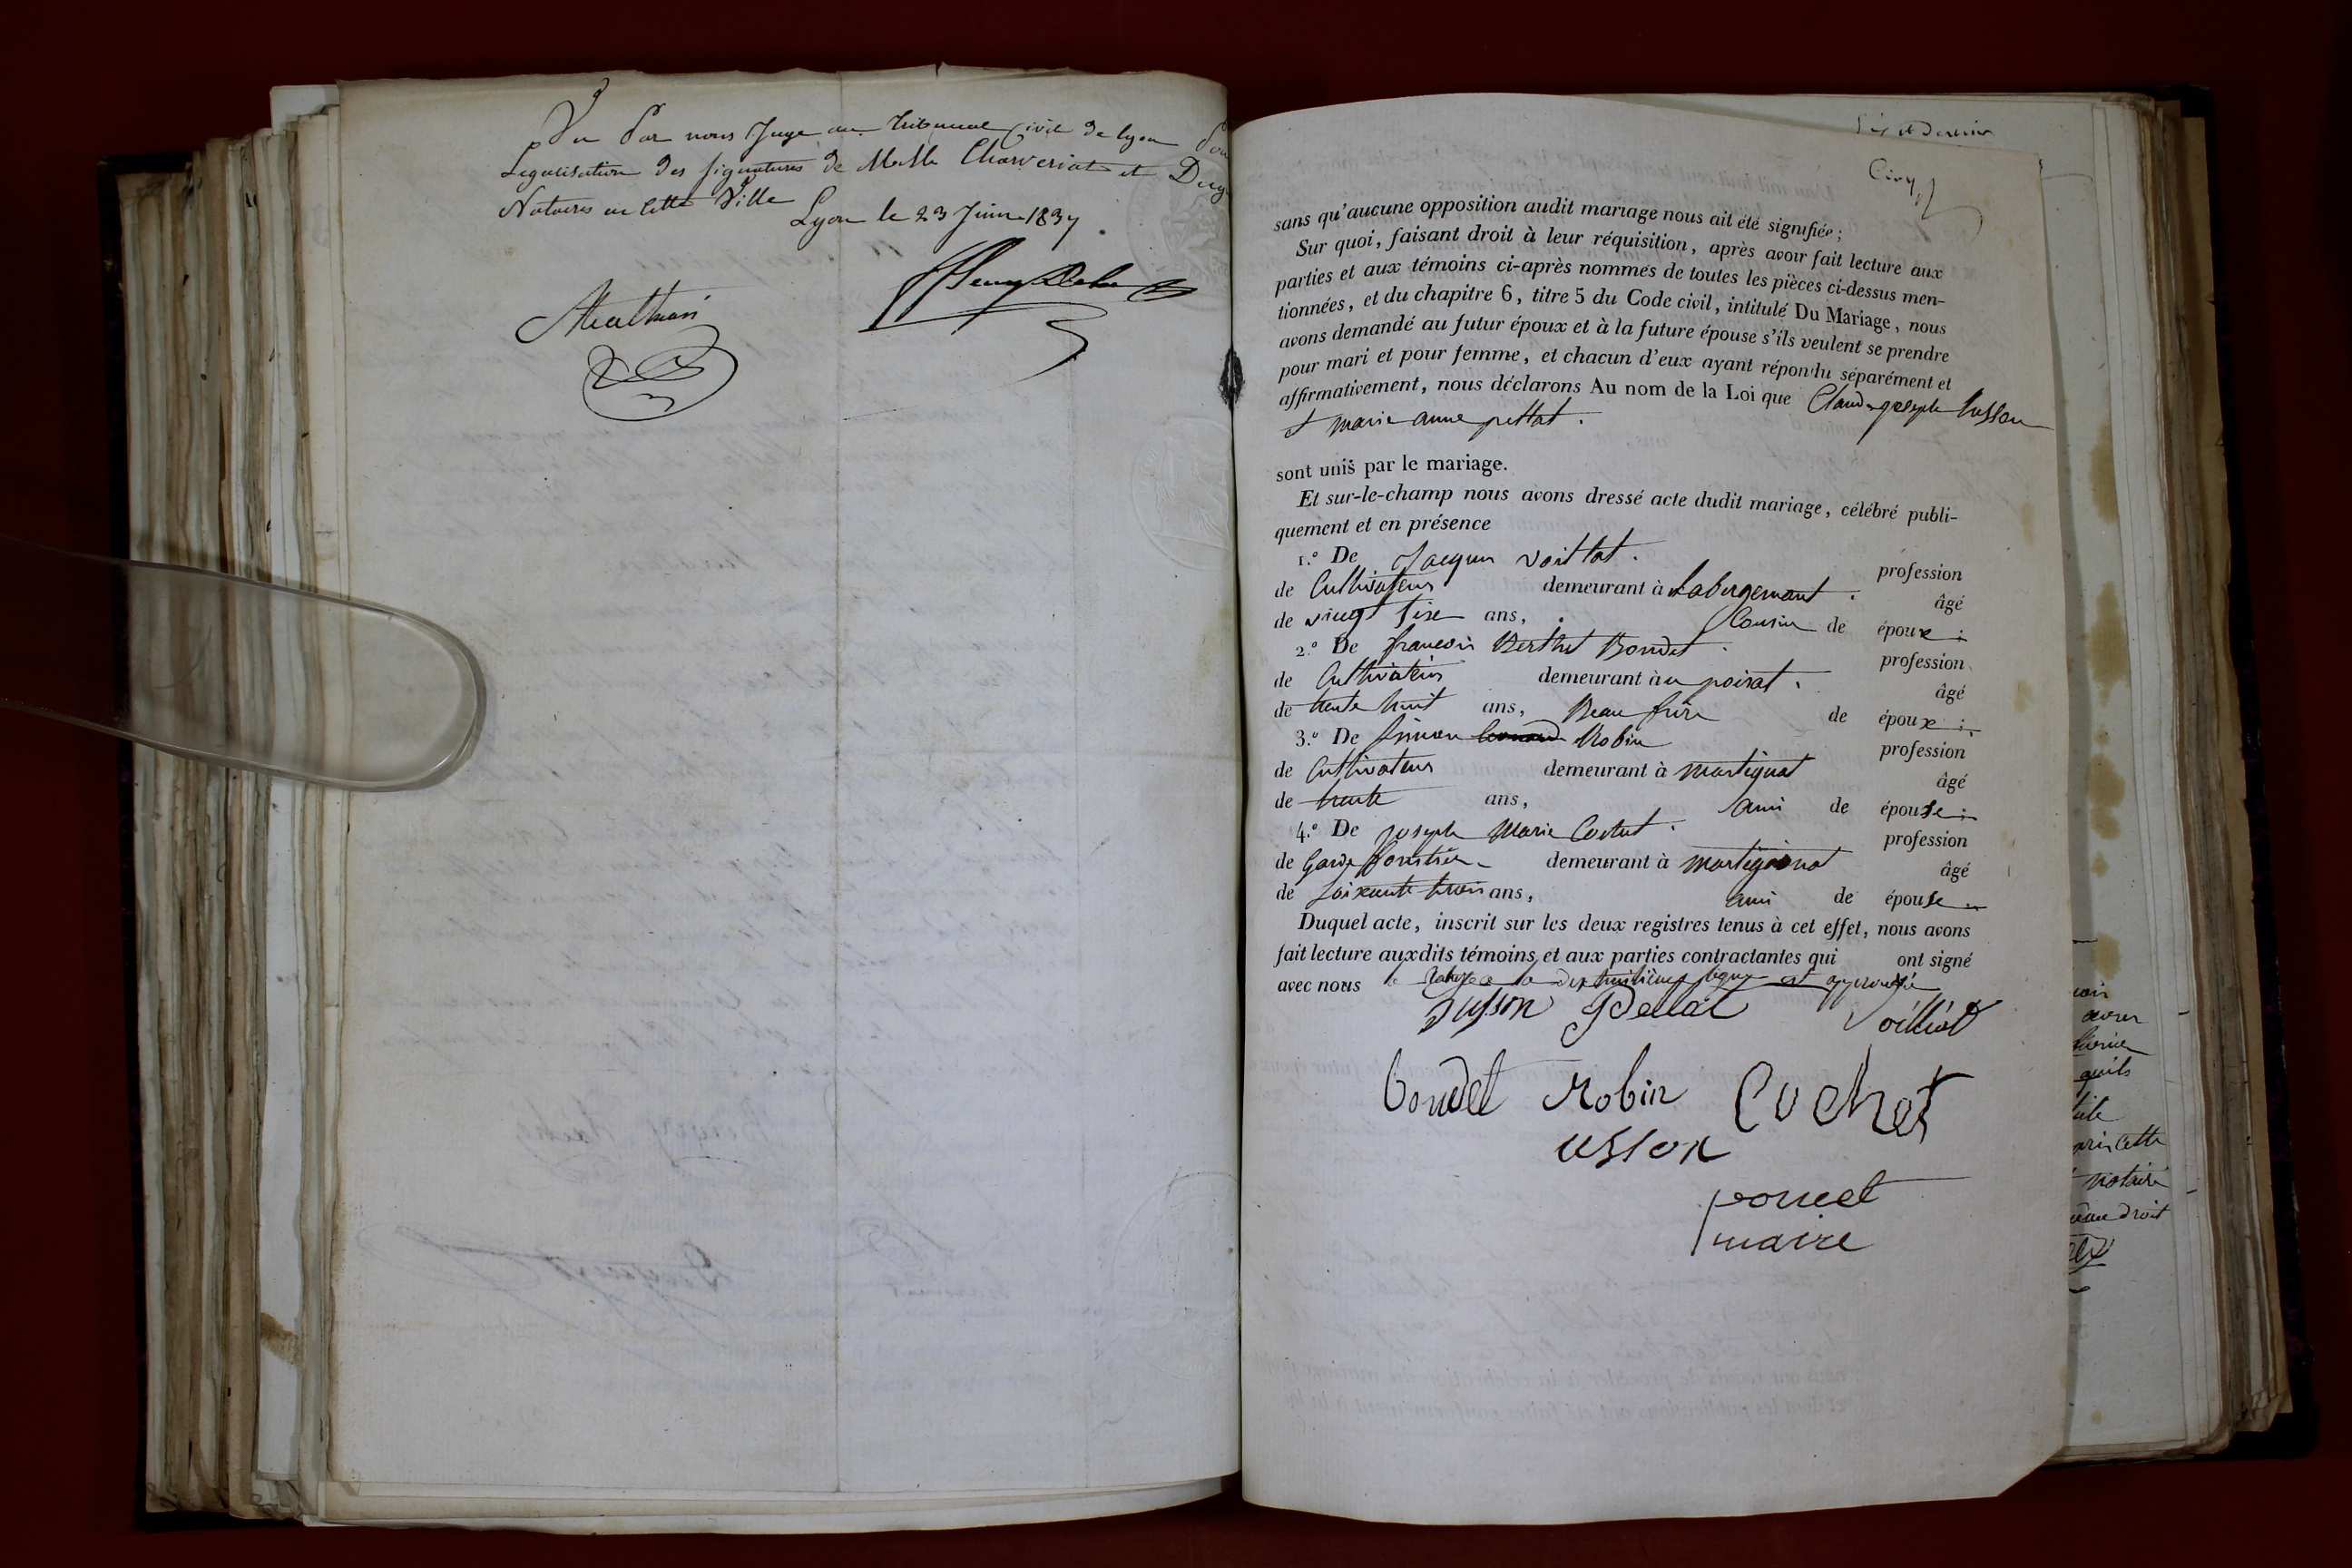 Vu Par nous Juge au Tribunal Civil de Lyon Pou
Legalisation des signatures de MMrs Charveriat et Dug
Notaires en cette Ville
Lyon le 23 Juin 1837
Cinq
sans qu'aucune opposition audit mariage nous ait été signifiée;
Sur quoi, faisant droit à leur réquisition, après avoir fait lecture aux
parties et aux témoins ci-après nommés de toutes les pièces ci-dessus men-
tionnées, et du chapitre 6, titre 5 du Code civil, intitulé Du Mariage, nous
avons demandé au futur époux et à la future épouse s'ils veulent se prendre
pour mari et pour femme, et chacun d'eux ayant répondu séparément et
affirmativement, nous déclarons Au nom de la Loi que Claude joseph husson
et marie anne pettat.
sont unis par le mariage.
Et sur-le-champ nous avons dressé acte dudit mariage, célébré publi-
quement et en présence
1.° De Jacques voillat. profession
de Cultivateur demeurant à Labergement. âgé
de vingt sixe ans, Cousin de époux;
2.° De francois Berthet Bondet. profession
de Cultivateur demeurant à u poizat. âgé
de trente huit ans, Beau frère de époux;
3.° De Simon Robin profession
de Cultivateur demeurant à martignat âgé
de trente ans, ami de épouse;
4.° De joseph Marie Cochet. profession
de Garde forestier demeurant à martignat âgé
de soixante trois ans, ami de épouse
Duquel acte, inscrit sur les deux registres tenus à cet effet, nous avons
fait lecture auxdits témoins et aux parties contractantes qui ont signé
avec nous le à la dix huitième ligne est approuvé
husson Pettat Voilliat
bondet Robin Cochet
usson
poncet
maire
quils
notaire
droit